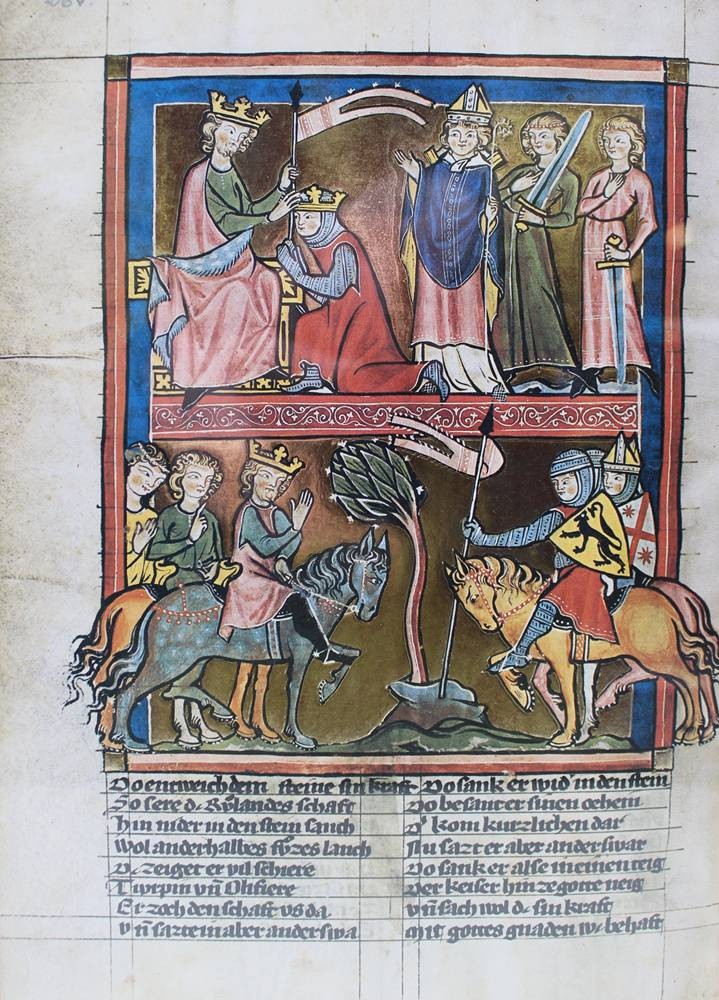 Do entweich dem steine sin kraft
So sere d Rvlandes schaft
Hin nider in den stein sanch
Wol anderhalbes fvzes lanch
zeiger er vil schiere
Tvrpin vn̄ Olifiere
Er zoch den schaft vs da
vn̄ sazte in aber anderswa
Do sank er wid' in den stein
Do besant er sinen oehein
D' kom kurzlichen dar
Nu sazt er aber anderswar
Do sank er alse in einen teig
Der keiser hin ze gotte neig
vn̄ sach wol d sin kraft
Mit gottes gnaden w behaft